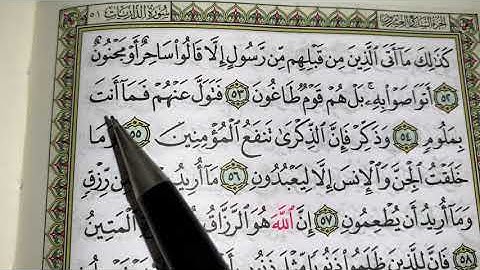 سُورَةُ الذَّارِيَاتِ ٥١
كَذَٰلِكَ مَآ أَتَى ٱلَّذِينَ مِن قَبۡلِهِم مِّن رَّسُولٍ إِلَّا قَالُواْ سَاحِرٌ أَوۡ مَجۡنُونٌ
٥٢ أَتَوَاصَوۡاْ بِهِۦۚ بَلۡ هُمۡ قَوۡمٞ طَاغُونَ ٥٣ فَتَوَلَّ عَنۡهُمۡ فَمَآ أَنتَ
بِمَلُومٖ ٥٤ وَذَكِّرۡ فَإِنَّ ٱلذِّكۡرَىٰ تَنفَعُ ٱلۡمُؤۡمِنِينَ ٥٥ وَمَا
خَلَقۡتُ ٱلۡجِنَّ وَٱلۡإِنسَ إِلَّا لِيَعۡبُدُونِ ٥٦ مَآ أُرِيدُ مِن رِّزۡقٖ
وَمَآ أُرِيدُ أَن يُطۡعِمُونِ ٥٧ إِنَّ ٱللَّهَ هُوَ ٱلرَّزَّاقُ ٱلۡمَتِينُ
٥٨ فَإِنَّ لِلَّذِينَ ظَلَمُواْ ذَنُوبٗا مِّثۡلَ ذَنُوبِ